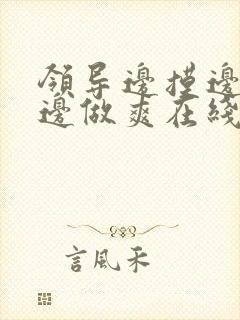 领导邊摸邊
邊做爽在綫
言風禾